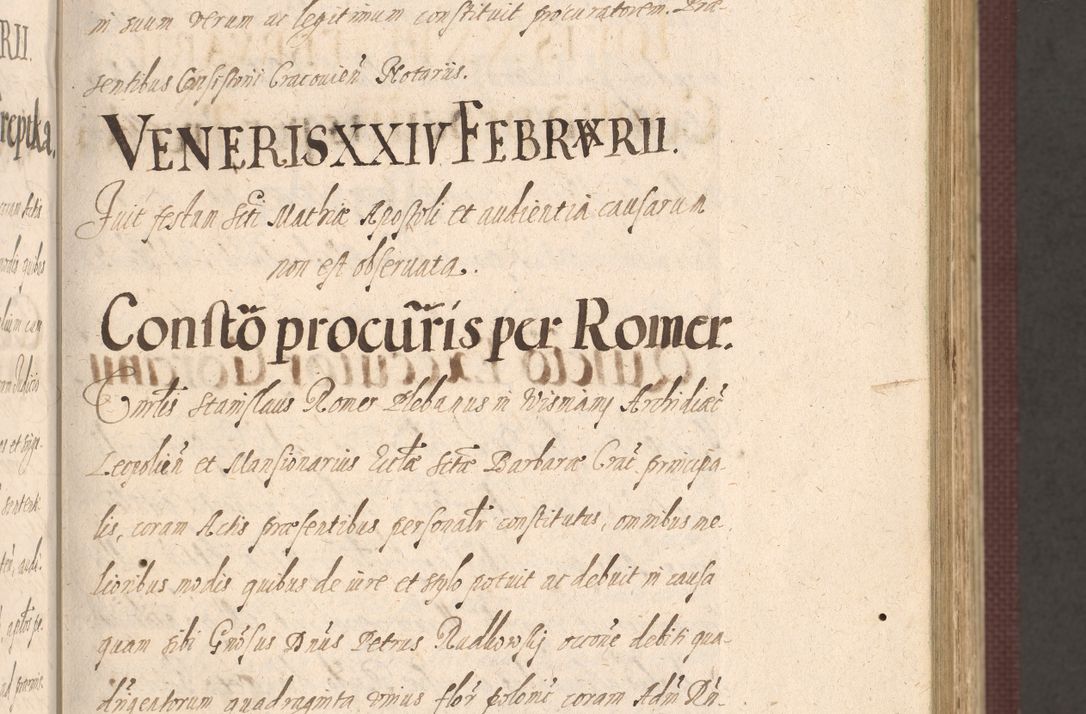 RII.
in suum verum ac legitimum constituit procuratorem. Præ-
sentibus Consistorii Cracovien̄ Notariis.
reptka.
VENERIS XXIV FEBRVARII.
Fuit festum Scti Mathiæ Apostoli et audientia causarum
non est observata.
Constõ procur̃ris per Romer.
Stanislaus Romer Plebanus in Wisniany Archidiac̄
Leopolien̄ et Mansionarius Ecctæ Sctæ Barbaræ Crac̄. principa-
lis, coram Actis præsentibus personalr̄ constitutus, omnibus me-
lioribus modis quibus de iure et stylo potuit ac debuit in causa
quam sibi Gnōsus Dn̄us Petrus Rudkowskij occōne debiti qua-
dringentorum quadraginta unius flor̄ polonic̄ coram Adm̄ Rn-